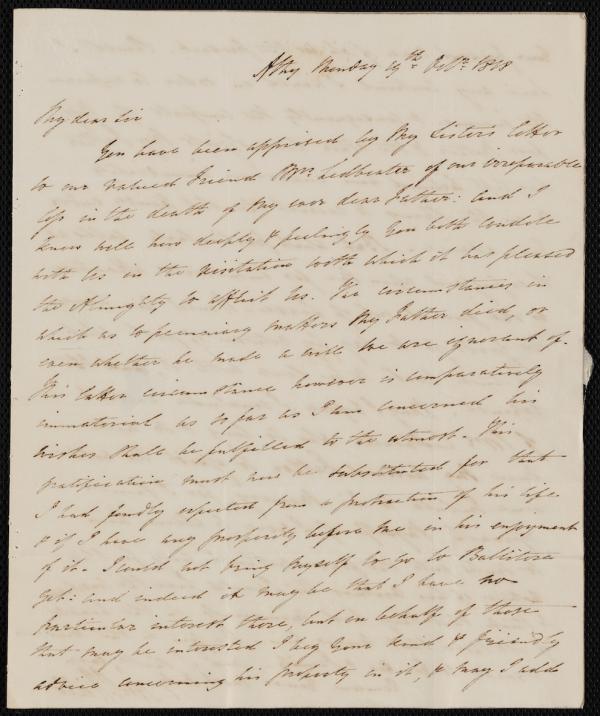 Athy Monday 19th Octr. 1818
My dear Sir
You have been apprised by My Sisters letter
to our valued Friend Mrs. Leadbeater of our irreparable
loss in the death of My ever dear Father: and I
know well how deeply & feelingly You both condole
with Us in the visitation with which it has pleased
the Almighty to afflict Us. The circumstances in
which as to pecuniary matters My Father died, or
even whether he made a will We are ignorant of.
This latter circumstance however is comparatively
immaterial as so far as I am concerned his
wishes shall be fulfilled to the utmost. This
gratification must now be substituted for that
I had fondly expected from a protraction of his life
& if I have any prosperity before Me in his enjoyment
of it. I could not bring Myself to go to Ballitore
yet: and indeed it may be that I have no
particular interest there, but on behalf of those
that may be interested I beg Your kind & friendly
advice concerning his property in it, & may I add